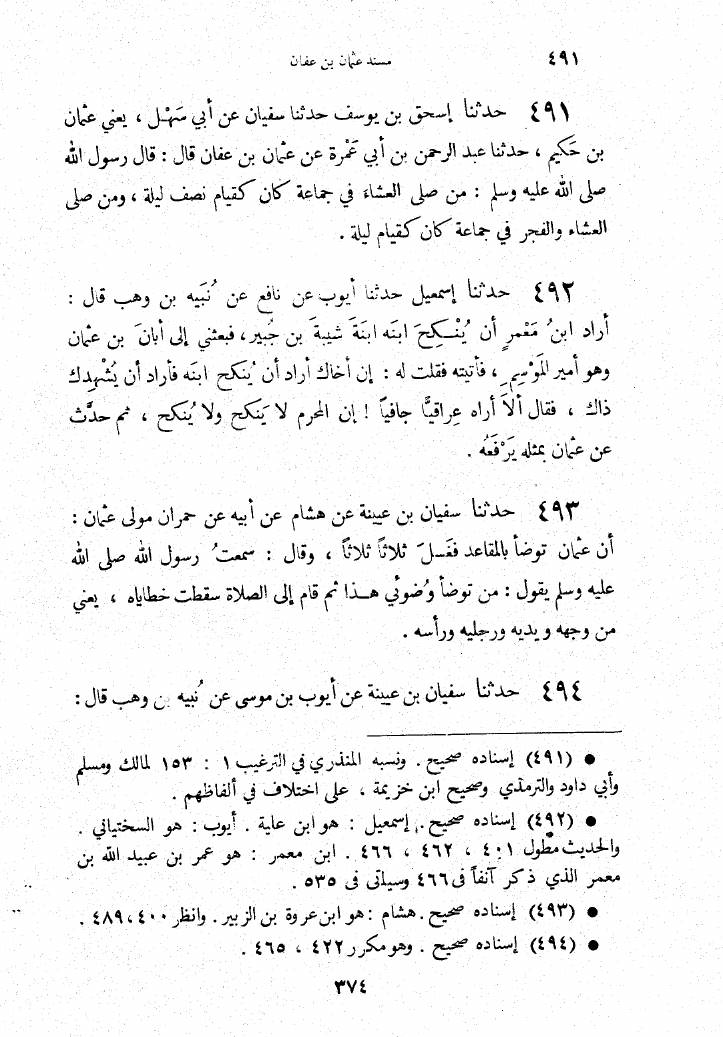 ٤٩١ مسند عثمان بن عفان
٤٩١ حدثنا إسحق بن يوسف حدثنا سفيان عن أبي سَهْل ، يعني عثمان
بن حَكيم ، حدثنا عبد الرحمن بن أبي عَمْرة عن عثمان بن عفان قال : قال رسول الله
صلى الله عليه وسلم : من صلى العشاء في جماعة كان كقيام نصف ليلة ، ومن صلى
العشاء والفجر في جماعة كان كقيام ليلة .
٤٩٢ حدثنا إسمعيل حدثنا أيوب عن نافع عن نُبَيه بن وهب قال :
أراد ابنُ مَعْمرٍ أن يُنْكِحَ ابنَه ابنةَ شيبةَ بن جُبير، فبعثني إلى أبانَ بن عثمان
وهو أمير المَوْسِمِ ، فأتيته فقلت له : إن أخاك أراد أن يُنكح ابنَه فأراد أن يُشْهِدك
ذاك ، فقال ألاَ أراه عِراقيًّا جافياً ! إن المحرم لا يَنكح ولا يُنكح ، ثم حدَّث
عن عثمان بمثله يَرْفَعُه .
٤٩٣ حدثنا سفيان بن عيينة عن هشام عن أبيه عن حمران مولى عثمان :
أن عثمان توضأ بالمقاعد فغسلَ ثلاثاً ثلاثاً ، وقال : سمعتُ رسول الله صلى الله
عليه وسلم يقول : من توضأ وُضوئي هذا ثم قام إلى الصلاة سقطت خطاياه ، يعني
من وجهه ويديه ورجليه ورأسه .
٤٩٤ حدثنا سفيان بن عيينة عن أيوب بن موسى عن نُبيه بن وهب قال :
● (٤٩١) إسناده صحيح . ونسبه المنذري في الترغيب ١ : ١٥٣ لمالك ومسلم
وأبي داود والترمذي وصحيح ابن خزيمة ، على اختلاف في ألفاظهم .
● (٤٩٢) إسناده صحيح . إسمعيل : هو ابن علية . أيوب : هو السختياني .
والحديث مطول ٤٠١ ، ٤٦٢ ، ٤٦٦ . ابن معمر : هو عمر بن عبيد الله بن
معمر الذي ذكر آنفاً في ٤٦٦ وسيأتي في ٥٣٥ .
● (٤٩٣) إسناده صحيح . هشام : هو ابن عروة بن الزبير . وانظر ٤٠٠ ، ٤٨٩ .
● (٤٩٤) إسناده صحيح . وهو مكرر ٤٢٢ ، ٤٦٥ .
٣٧٤